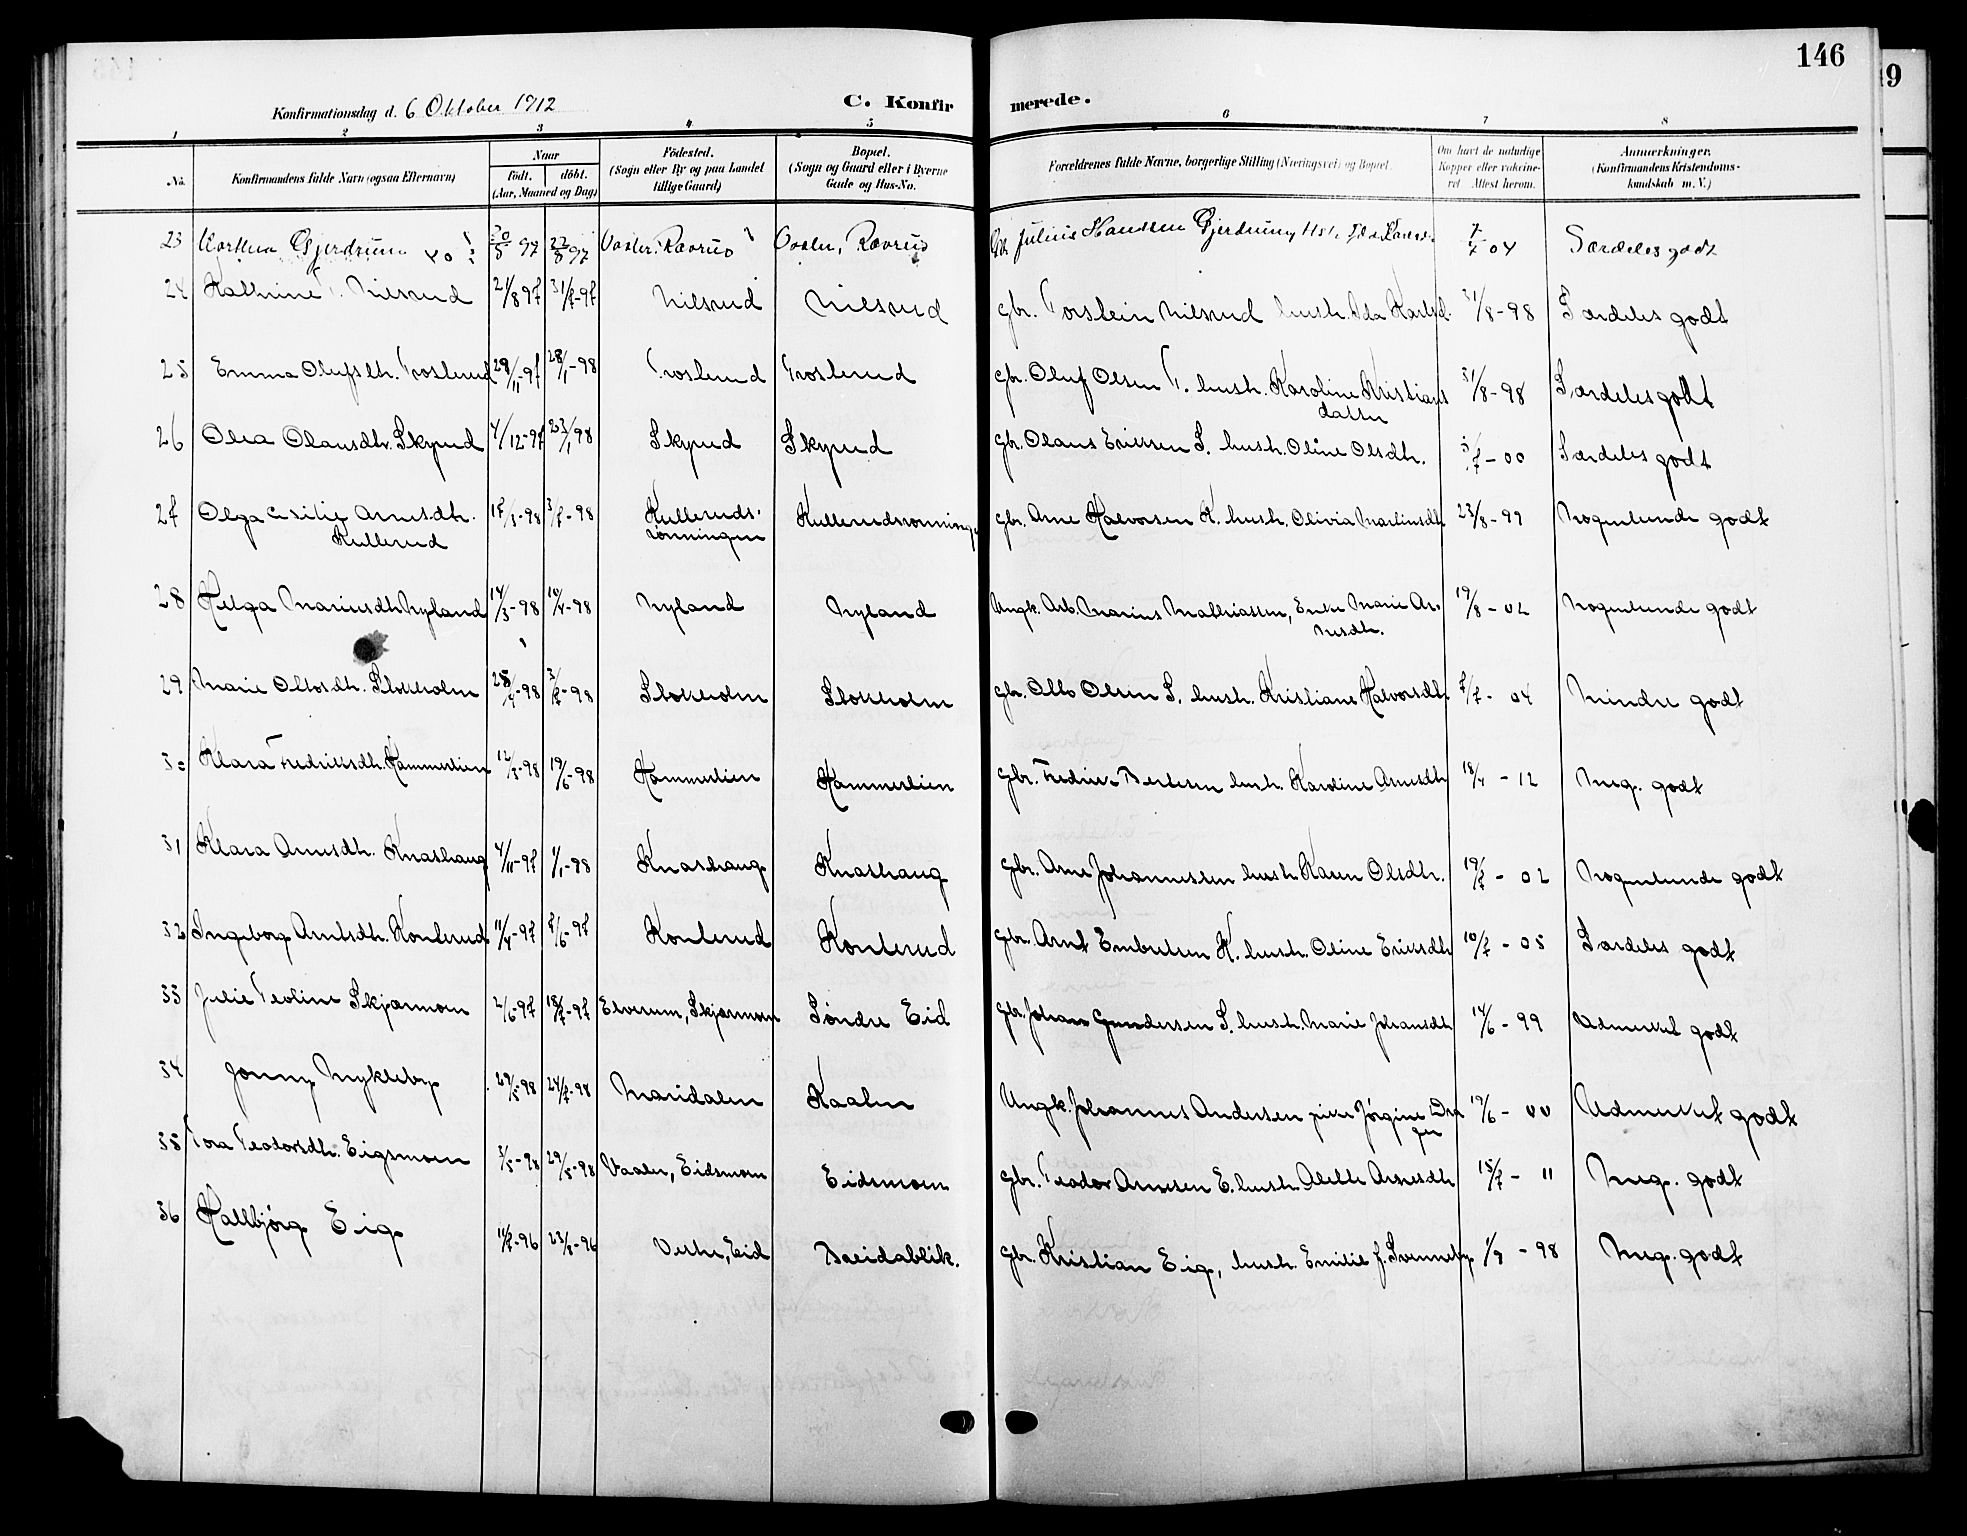 146
Konfirmationsdag d. 6 Oktober 1912
C. Konfirmerede.
1 2 3 4 5 6 7 8
No. Konfirmandens fulde Navn (ogsaa Efternavn) Naar Födt. döbt. (Aar, Maaned og Dag) Födested. (Sogn eller By og paa Landet tillige Gaard) Bopæl. (Sogn og Gaard eller i Byerne Gade og Hus-No. Forældrenes fulde Navne, borgerlige Stilling (Næringsvei) og Bopæl. Om havt de naturlige Kopper eller vakcineret. Attest herom. Anmærkninger. (Konfirmandens Kristendomskundskab m. V.)
23 Gjerdrum 97 Julius Gjerdrum 04 Særdeles godt
24 Nilsrud 21/8 97 Nilsrud Nilsrud gbr. Torstein Nilsrud hustr. Ida 31/8-98 Særdeles godt
25 Emma Olufsdtr. Troslerud 28/1-98 Troslerud Troslerud gbr. Oluf Olsen T. hustr. Karoline Kristians
datter 31/8-98 Særdeles godt
26 Olea Olausdtr. Skyrud 4/12-97 23/1 98 Skyrud Skyrud gbr. Olaus Eriksen S. hustr. Oline Olsdtr. 00 Særdeles godt
27 Olga Arnesdtr.
Kullerud 98 Kulleruds-
rönningen gbr. Arne Halvorsen K. hustr. Olivia Martinsdtr. 23/8-99 Nogenlunde godt
28 Helga Mariusdtr. Nyland 14/3-98 10/4-98 Nyland Nyland Ungk. Arb. Marius Mathiassen, Enke Marie Ar-
nesdtr. 19/8-02 Nogenlunde godt
29 Marie Ottosdtr. Stokholm 98 98 Stokholm Stokholm gbr. Otto Olsen S. hustr. Kristiane Halvorsdtr. 7/7-04 Mindre godt
30 Klara Fredriksdtr. Kammerlien 98 19/6-98 Kammerlien Kammerlien gbr. Fredrik hustr. Karoline Arnesdtr. 18/4-12 Meg. godt
31 Klara Arnesdtr. Knashaug 4/11-97 1/1-98 Knashaug Knashaug gbr. Arne Johannessen hustr. Karen Olsdtr. 02 Nogenlunde godt
32 Ingeborg Arntsdtr. Konterud 11/4-97 7/6-97 Konterud Konterud gbr. Arnt Embretsen K. hustr. Oline Eriksdtr. 10/7-05 Særdeles godt
33 Julie Teoline Skjærmoen 2/6-97 18/7-97 Elverum, Skjærmoen Söndre Eid gbr. Johan Gundersen S. hustr. Marie Johansdtr. 14/6-99 Udmerket godt
34 Jonny Mykleby 29/5-98 24/7-98 Maridalen Kaalen Ungk. Johannes Andersen pike Jörgine 19/6-00 Udmerket godt
35 Tora Teodorsdtr. Eigsmoen 3/5-98 29/5-98 Vaaler, Eidsmoen Eidsmoen gbr. Teodor Arnesen E. hustr. Alette Arnesdtr. 15/7-11 Meg. godt
36 Hallbjörg Eig 96 23/8-96 Vestre, Eid Breidablik. gbr. Kristian Eig, hustr. Emilie f. Svenneby 1/9-98 Meg. godt